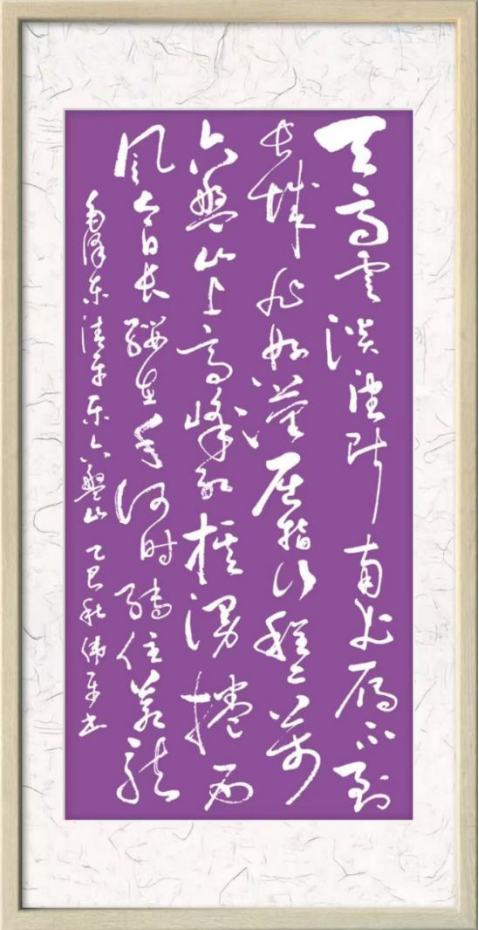 天高雲淡望断南飞雁不到
长城非好漢屈指行程二萬
六盤山上高峰红旗漫捲西
风今日长缨在手何时缚住苍龙
毛泽东清平乐六盤山 乙巳秋伟平书